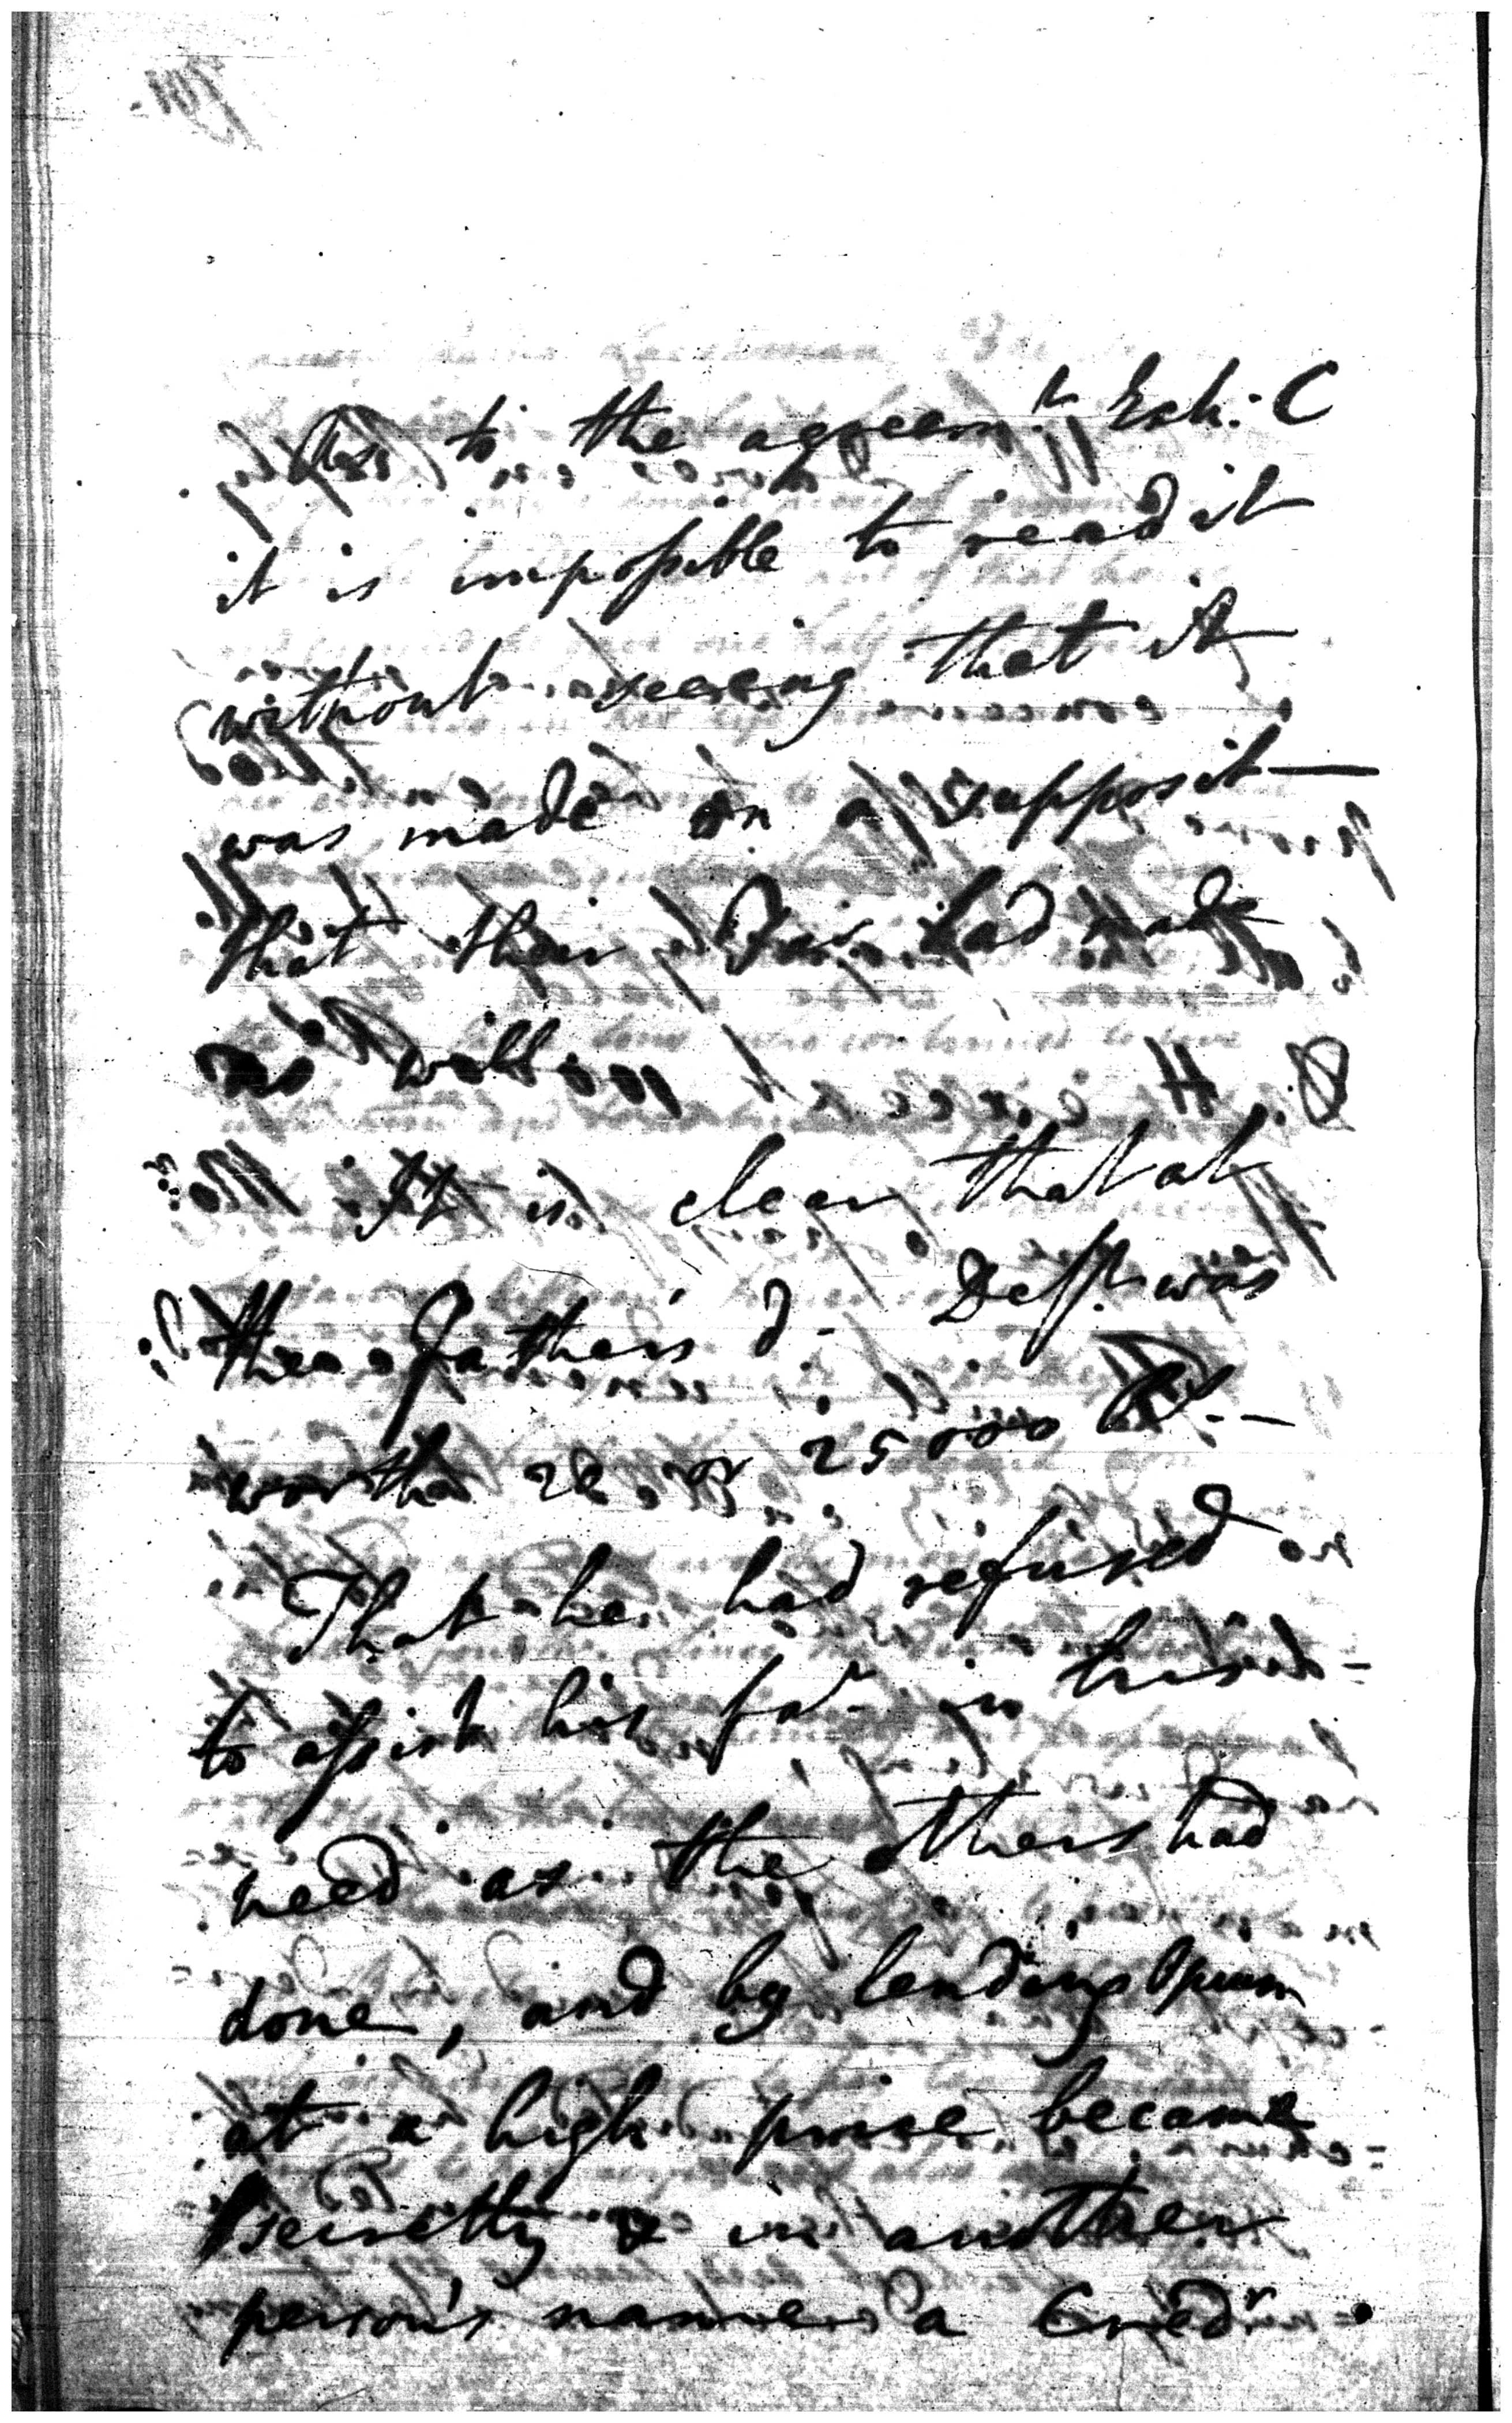 As to the agreemt. Exh: C
it is impossible to read it
without seeing that it
was made on a supposit—
that their Far. had made
no will
It is clear that at
the father's d— Deft. was
worth 20 or 25000 Rs.—
That he had refused
to assist his far in his
need as the others had
done, and by lending Opium
at a high price became
secretly & in another
person's name a Credr.